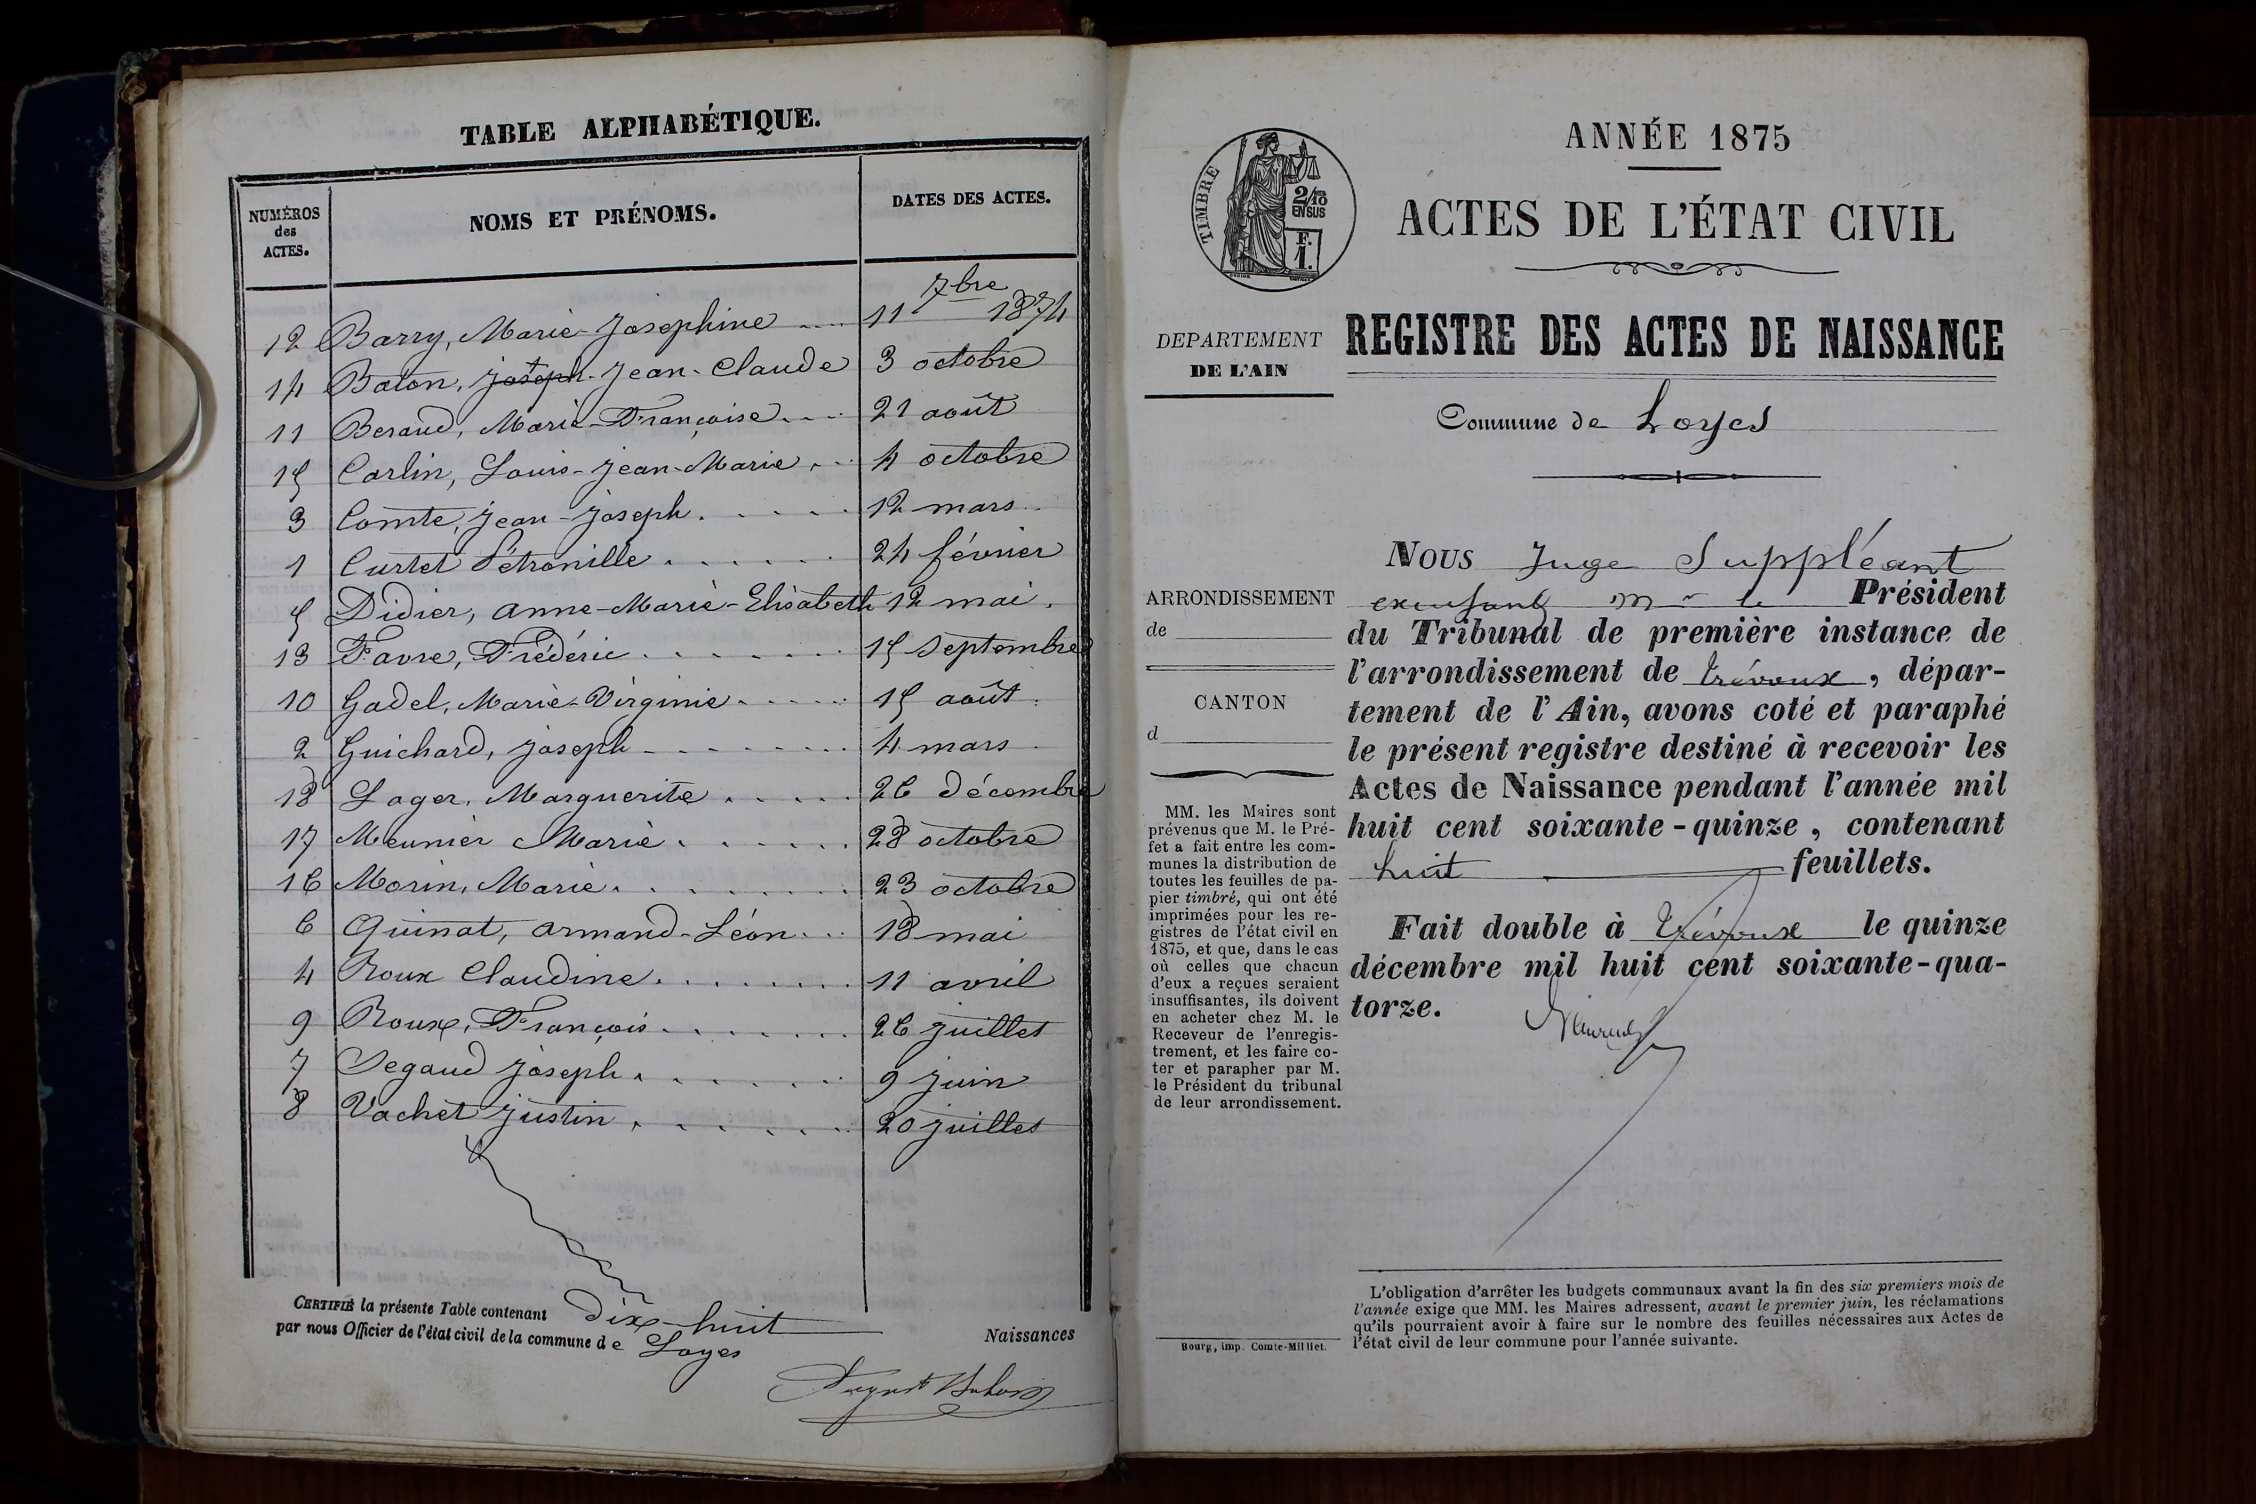 TABLE ALPHABÉTIQUE.
NUMÉROS des ACTES. NOMS ET PRÉNOMS. DATES DES ACTES.
12 Barry, Marie-Joséphine 11 7bre 1874
14 Baton, Joseph-Jean-Claude 3 octobre
11 Beraud, Marie-Françoise 21 août
15 Carlin, Louis-Jean-Marie 4 octobre
3 Comte, Jean-Joseph 12 mars
1 Curtet Pétronille 24 février
5 Didier, Anne-Marie-Elisabeth 12 mai
13 Favre, Frédéric 15 septembre
10 Gadel, Marie-Virginie 15 août
2 Guichard, Joseph 4 mars
18 Lager, Marguerite 26 décembre
17 Meunier Marie 28 octobre
16 Morin, Marie 23 octobre
6 Quinat, Armand-Léon 18 mai
4 Roux Claudine 11 avril
9 Roux, François 26 juillet
7 Segaud Joseph 9 juin
8 Vachet Justin 20 juillet
CERTIFIÉ la présente Table contenant Dix-huit Naissances
par nous Officier de l'état civil de la commune de Loyes
TIMBRE
2/10
EN SUS
F.
1.
ANNÉE 1875
ACTES DE L'ÉTAT CIVIL
DEPARTEMENT
DE L'AIN
REGISTRE DES ACTES DE NAISSANCE
Commune de Loyes
ARRONDISSEMENT
de
CANTON
d
MM. les Maires sont
prévenus que M. le Pré-
fet a fait entre les com-
munes la distribution de
toutes les feuilles de pa-
pier timbré, qui ont été
imprimées pour les re-
gistres de l'état civil en
1875, et que, dans le cas
où celles que chacun
d'eux a reçues seraient
insuffisantes, ils doivent
en acheter chez M. le
Receveur de l'enregis-
trement, et les faire co-
ter et parapher par M.
le Président du tribunal
de leur arrondissement.
Bourg, imp. Comte-Milliet.
NOUS Juge Suppléant
Mr le Président
du Tribunal de première instance de
l'arrondissement de Trévoux, dépar-
tement de l'Ain, avons coté et paraphé
le présent registre destiné à recevoir les
Actes de Naissance pendant l'année mil
huit cent soixante-quinze, contenant
huit feuillets.
Fait double à Trévoux le quinze
décembre mil huit cent soixante-qua-
torze.
L'obligation d'arrêter les budgets communaux avant la fin des six premiers mois de
l'année exige que MM. les Maires adressent, avant le premier juin, les réclamations
qu'ils pourraient avoir à faire sur le nombre des feuilles nécessaires aux Actes de
l'état civil de leur commune pour l'année suivante.